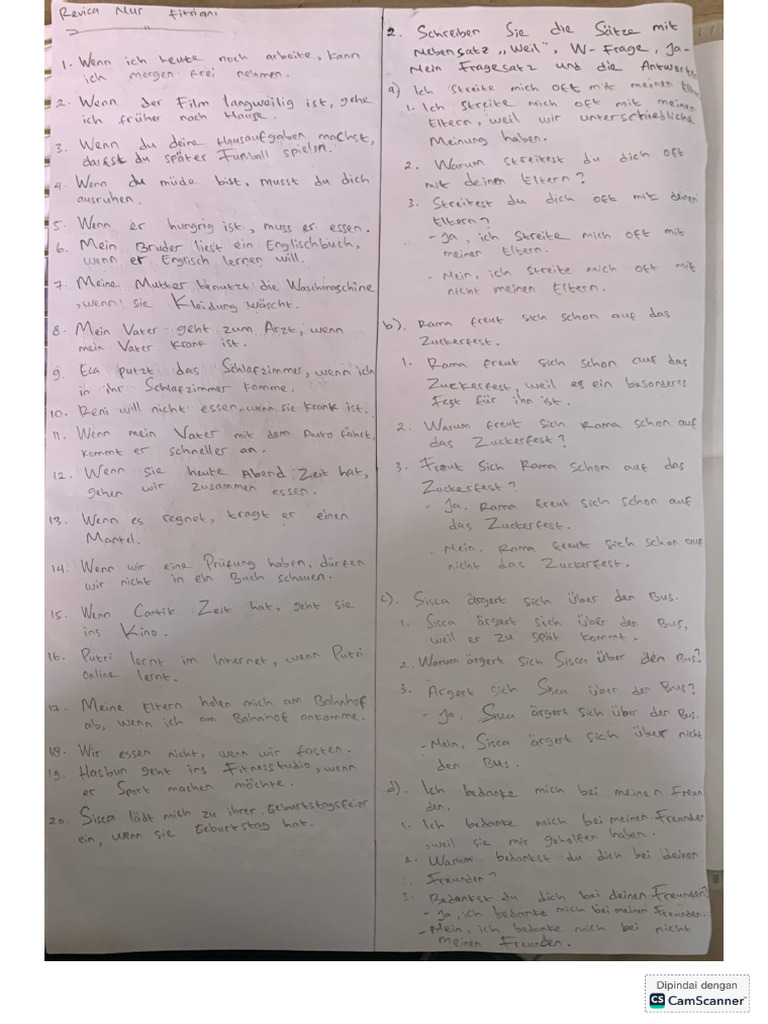 Revica Nur Fitriani
1. Wenn ich heute noch arbeite, kann
ich morgen frei nehmen.
2. Wenn der Film langweilig ist, gehe
ich früher nach Hause.
3. Wenn du deine Hausaufgaben machst,
darfst du später Fußball spielen.
4. Wenn du müde bist, musst du dich
ausruhen.
5. Wenn er hungrig ist, muss er essen.
6. Mein Bruder liest ein Englischbuch,
wenn er Englisch lernen will.
7. Meine Mutter benutzt die Waschmaschine
, wenn sie Kleidung wäscht.
8. Mein Vater geht zum Arzt, wenn
mein Vater krank ist.
9. Eca putzt das Schlafzimmer, wenn ich
in ihr Schlafzimmer komme.
10. Reni will nicht essen, wenn sie krank ist.
11. Wenn mein Vater mit dem Auto fährt,
kommt er schneller an.
12. Wenn sie heute Abend Zeit hat,
gehen wir zusammen essen.
13. Wenn es regnet, tragt er einen
Mantel.
14. Wenn wir eine Prüfung haben, dürfen
wir nicht in ein Buch schauen.
15. Wenn Cantik Zeit hat, geht sie
ins Kino.
16. Putri lernt im Internet, wenn Putri
online lernt.
17. Meine Eltern holen mich am Bahnhof
ab, wenn ich am Bahnhof ankomme.
18. Wir essen nicht, wenn wir fasten.
19. Hasbun geht ins Fitnesstudio, wenn
er Sport machen möchte.
20. Sisca lädt mich zu ihrer Geburtstagsfeier
ein, wenn sie Geburtstag hat.
2. Schreiben Sie die Sätze mit
Nebensatz „weil", W-Frage, Ja-
Nein Fragesatz und die Antworten
a) Ich streite mich oft mit meinen Eltern
1. Ich streite mich oft mit meinen
Eltern, weil wir unterschiedliche
Meinung haben.
2. Warum streitest du dich oft
mit deinen Eltern?
3. Streitest du dich oft mit deinen
Eltern?
- Ja, ich streite mich oft mit
meiner Eltern.
- Nein, ich streite mich oft mit
nicht meinen Eltern.
b). Rama freut sich schon auf das
Zuckerfest.
1. Rama freut sich schon auf das
Zuckerfest, weil es ein besonderes
Fest für ihn ist.
2. Warum freut sich Rama schon auf
das Zuckerfest?
3. Freut sich Rama schon auf das
Zuckerfest?
- Ja. Rama freut sich schon auf
das Zuckerfest.
- Nein. Rama freut sich schon auf
nicht das Zuckerfest.
c). Sisca ärgert sich über den Bus.
1. Sisca ärgert sich über den Bus,
weil er zu spät kommt.
2. Warum ärgert sich Sisca über den Bus?
3. Ärgert sich Sisca über den Bus?
- Ja, Sisca ärgert sich über den Bus.
- Nein, Sisca ärgert sich über nicht
den Bus.
d). Ich bedanke mich bei meinen Freun
den.
1. Ich bedanke mich bei meinen Freunden
, weil sie mir geholfen haben.
2. Warum bedankst du dich bei deinen
Freunden?
3. Bedankst du dich bei deinen Freunden?
- Ja, ich bedanke mich bei meinen Freunden.
- Nein, ich bedanke mich bei nicht
meinen Freunden.
Dipindai dengan
CS CamScanner